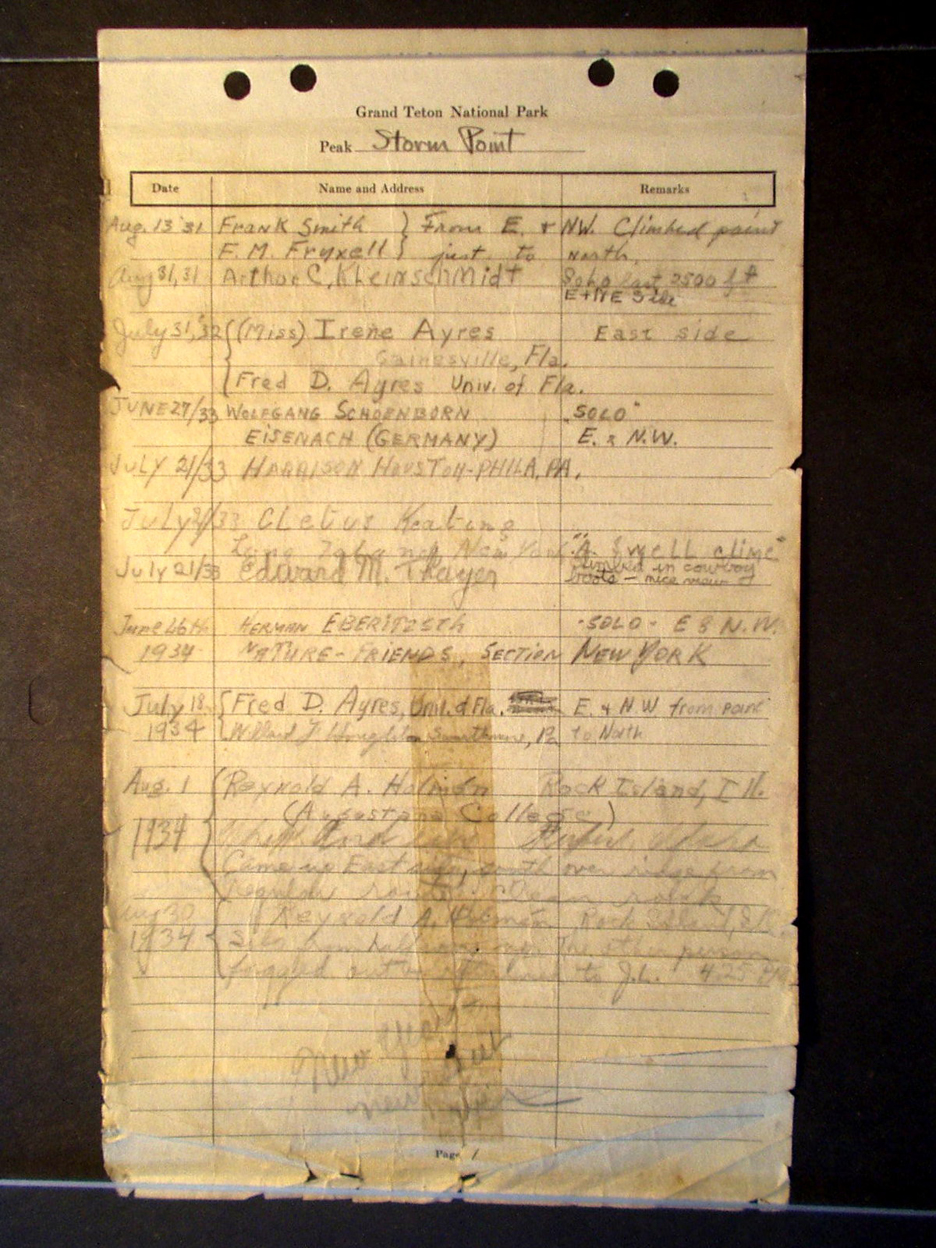 Grand Teton National Park
Peak Storm Point
Date Name and Address Remarks
Aug. 13 '31 Frank Smith } From E. & NW. Climbed point
F. M. Fryxell } just to north.
Aug 31, 31 Arthor C. Kleinschmidt Solo last 2500 ft
E + NE Side
July 31, '32 { (Miss) Irene Ayres East side
Gainesville, Fla.
{ Fred D. Ayres Univ. of Fla.
JUNE 27/33 WOLFGANG SCHOENBORN "SOLO"
EISENACH (GERMANY) E. & N.W.
JULY 21/33 HARRISON HOUSTON-PHILA, PA.
July 21/33 Cletus Keating
Long Island New York "A swell clime"
July 21/33 Edward M. Thayer climbed in cowboy
boots - nice view
June 26th HERMAN -SOLO- E & N.W.
1934 NATURE-FRIENDS, SECTION NEW YORK
July 18 { Fred D. Ayres, Univ. of Fla. E. & N W from point
1934 Willard Houghton Swarthmore, Pa to North
Aug. 1 { Reynold A. Holmén Rock Island, Ill.
(Augustana College)
1934
Came up East side, south over ridge from
regular
Aug 30 { Reynold A. Holmén Rock Island, Ill.
1934 Solo from The other person
out to J.L. 4:25 PM
New Year
new
Page 1